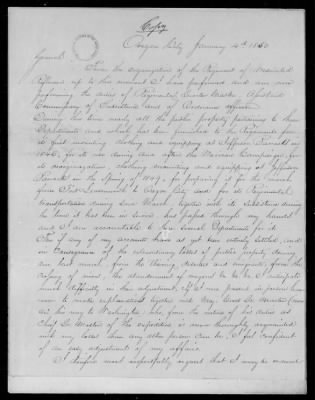 Copy
Oregon City January 4th 1850
General
From the organization of the Regiment of Mounted
Riflemen up to this moment I have performed and am now
performing the duties of Regimental Quarter Master, Assistant
Commissary of Subsistence and of Ordnance officer.
During this time nearly all the public property pertaining to these
Departments and which has been furnished to the Regiment for
its first mounting clothing and equipping at Jefferson Barracks in
1846, for its use during and after the Mexican Campaign, for
its reorganization clothing mounting and equipping at Jefferson
Barracks in the Spring of 1849, for preparing it for the march
from Fort Leavenworth to Oregon City and for its Regimental
transportation during said March, together with its Subsistence during
the time it has been in service has passed through my hands
and I am accountable to the several Departments for it.
Few if any of my accounts have as yet been entirely settled, and
in consequence of the extraordinary losses of public property during
our last march, from the Stealing, desertion and
of mind, the abandonment of wagons &c &c &c I anticipate
much difficulty in their adjustment. If I was present in person
now to make explanations together with
on his way to Washington who, from the nature of his duties as
Chief Qr Master of the expedition is more thoroughly acquainted
with my losses than any other person can be, I feel confident
of an easy adjustment of my affairs.
I therefore most respectfully request that I may be ordered